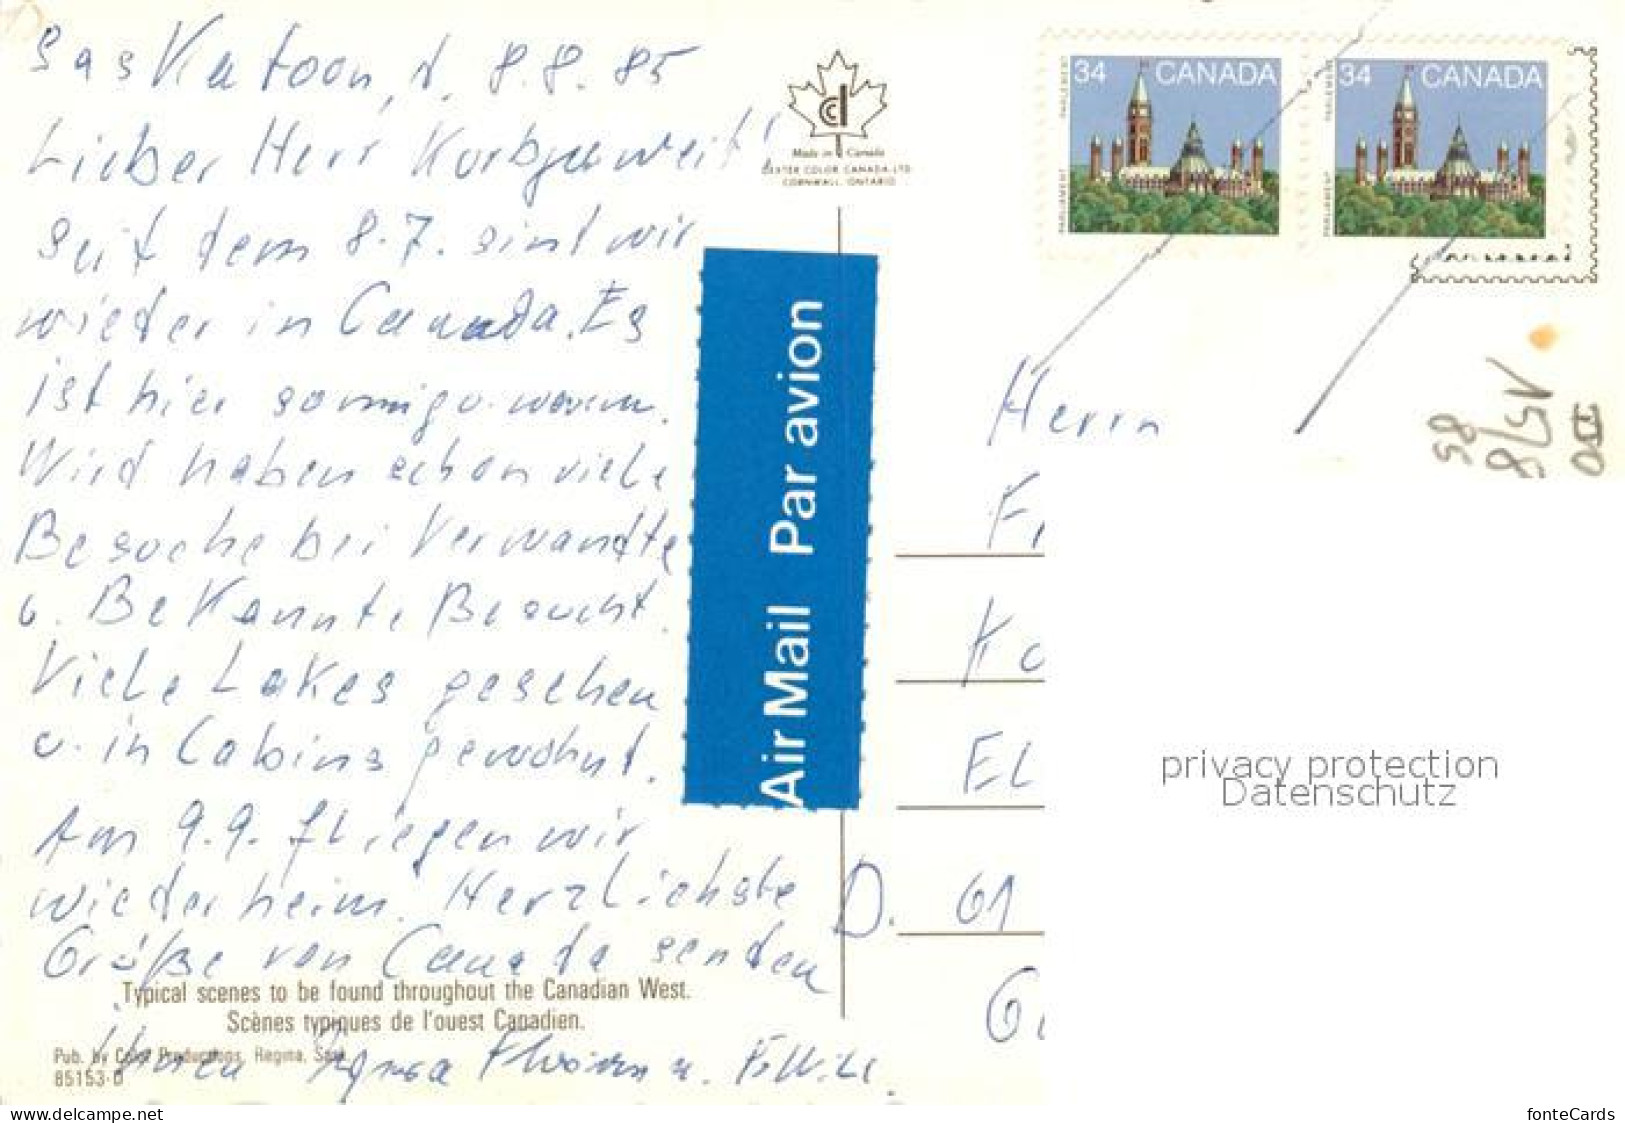 Saskatoon, d. 8.8.85
Lieber Herr
Seit dem 8.7. sind wir
wieder in Canada. Es
ist hier sonnig u. warm.
Wird haben schon viele
Besuche bei Verwandte
u. Bekannte Besucht.
Viele Lakes gesehen
u. in Cabins gewohnt.
Am 9.9. fliegen wir
wieder heim. Herzlichste
Grüße von Canada senden
Typical scenes to be found throughout the Canadian West.
Scènes typiques de l'ouest Canadien.
Pub. by Color Productions, Regina, Sask.
85153-D
u.
Made in Canada
DEXTER COLOR CANADA LTD.
CORNWALL, ONTARIO
Air Mail Par avion
34 CANADA
PARLIAMENT PARLEMENT
34 CANADA
PARLIAMENT PARLEMENT
Herrn
Fr
Ko
EL
D. 61
G
85
privacy protection
Datenschutz
www.delcampe.net
fonteCards